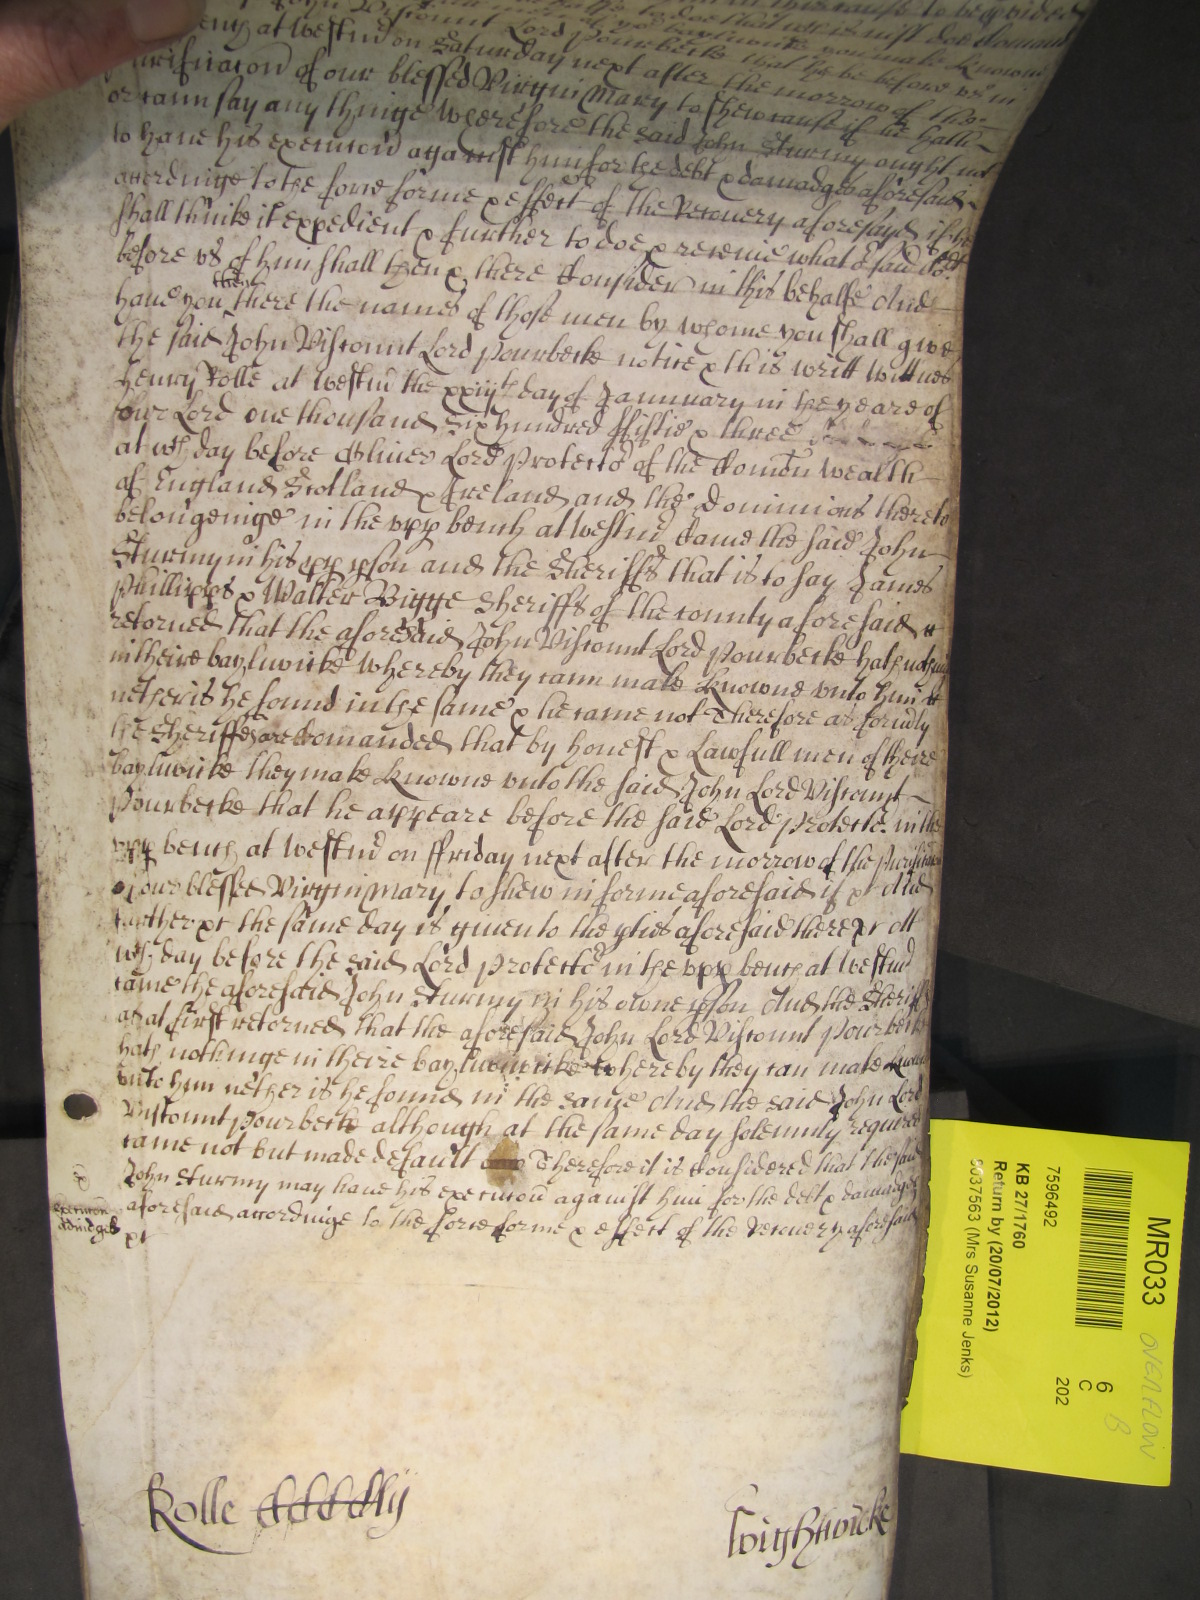 John Viscount Lord Pourbecke that he be before us in
at Westm on Saturday next after the morrow of the
purificacon of our blessed Virgin Mary to shew cause if he hath
or cann say any thinge wherefore the said John Sturmy ought not
to have his execucon against him for the debt & damadges aforesaid
accordinge to the force forme & effect of the recovery aforesayd if he
shall thinke it expedient & further to doe & receive what ye said Court
before us of him shall then & there Consider in this behalfe And
have you then there the names of those men by whome you shall give
the said John Viscount Lord Pourbecke notice & this writt wittnes
Henry Rolle at Westm the xxiiijth day of Jannuary in the yeare of
our Lord one thousand six hundred fiftie & three
at wch day before Oliver Lord Protector of the Comon wealth
of England Scotland & Ireland and the Dominions thereto
belongeinge in the upp bench at Westm Came the said John
Sturmy in his pp pson and the Sheriffs that is to say James
Phillipps & Walter Bigge Sheriffs of the county aforesaid
retorned that the aforesaid John Viscount Lord Pourbecke hath nothing
in theire baylywicke whereby they cann make knowne unto him
nether is he found in the same & he came not Therefore as secondly
the Sheriffs are Comanded that by honest & Lawfull men of theire
baylywicke they make knowne unto the said John Lord Viscount
Pourbecke that he appeare before the said Lord Protector in the
upp bench at Westm on ffriday next after the morrow of the Purificacon
of our blessed Virgin Mary to shew in forme aforesaid if &c And
further &c the same day is given to the pties aforesaid there &c Att
wch day before the said Lord Protector in the upp bench at Westm
came the aforesaid John Sturmy in his owne pson And the Sheriffs
as at first retorned that the aforesaid John Lord Viscount Pourbecke
hath nothinge in theire baylywicke whereby they can make knowne
unto him nether is he found in the same And the said John Lord
Viscount Pourbecke although at the same day solemnly required
came not but made default Therefore it is Considered that the said
John Sturmy may have his execucon against him for the debt & damages
aforesaid accordinge to the force forme & effect of the recovery aforesaid
&c
execucon
damages
Rolle
Wightwicke
MR033
OVERFLOW
B
6
C
202
7596492
KB 27/1760
Return by (20/07/2012)
5037563 (Mrs Susanne Jenks)